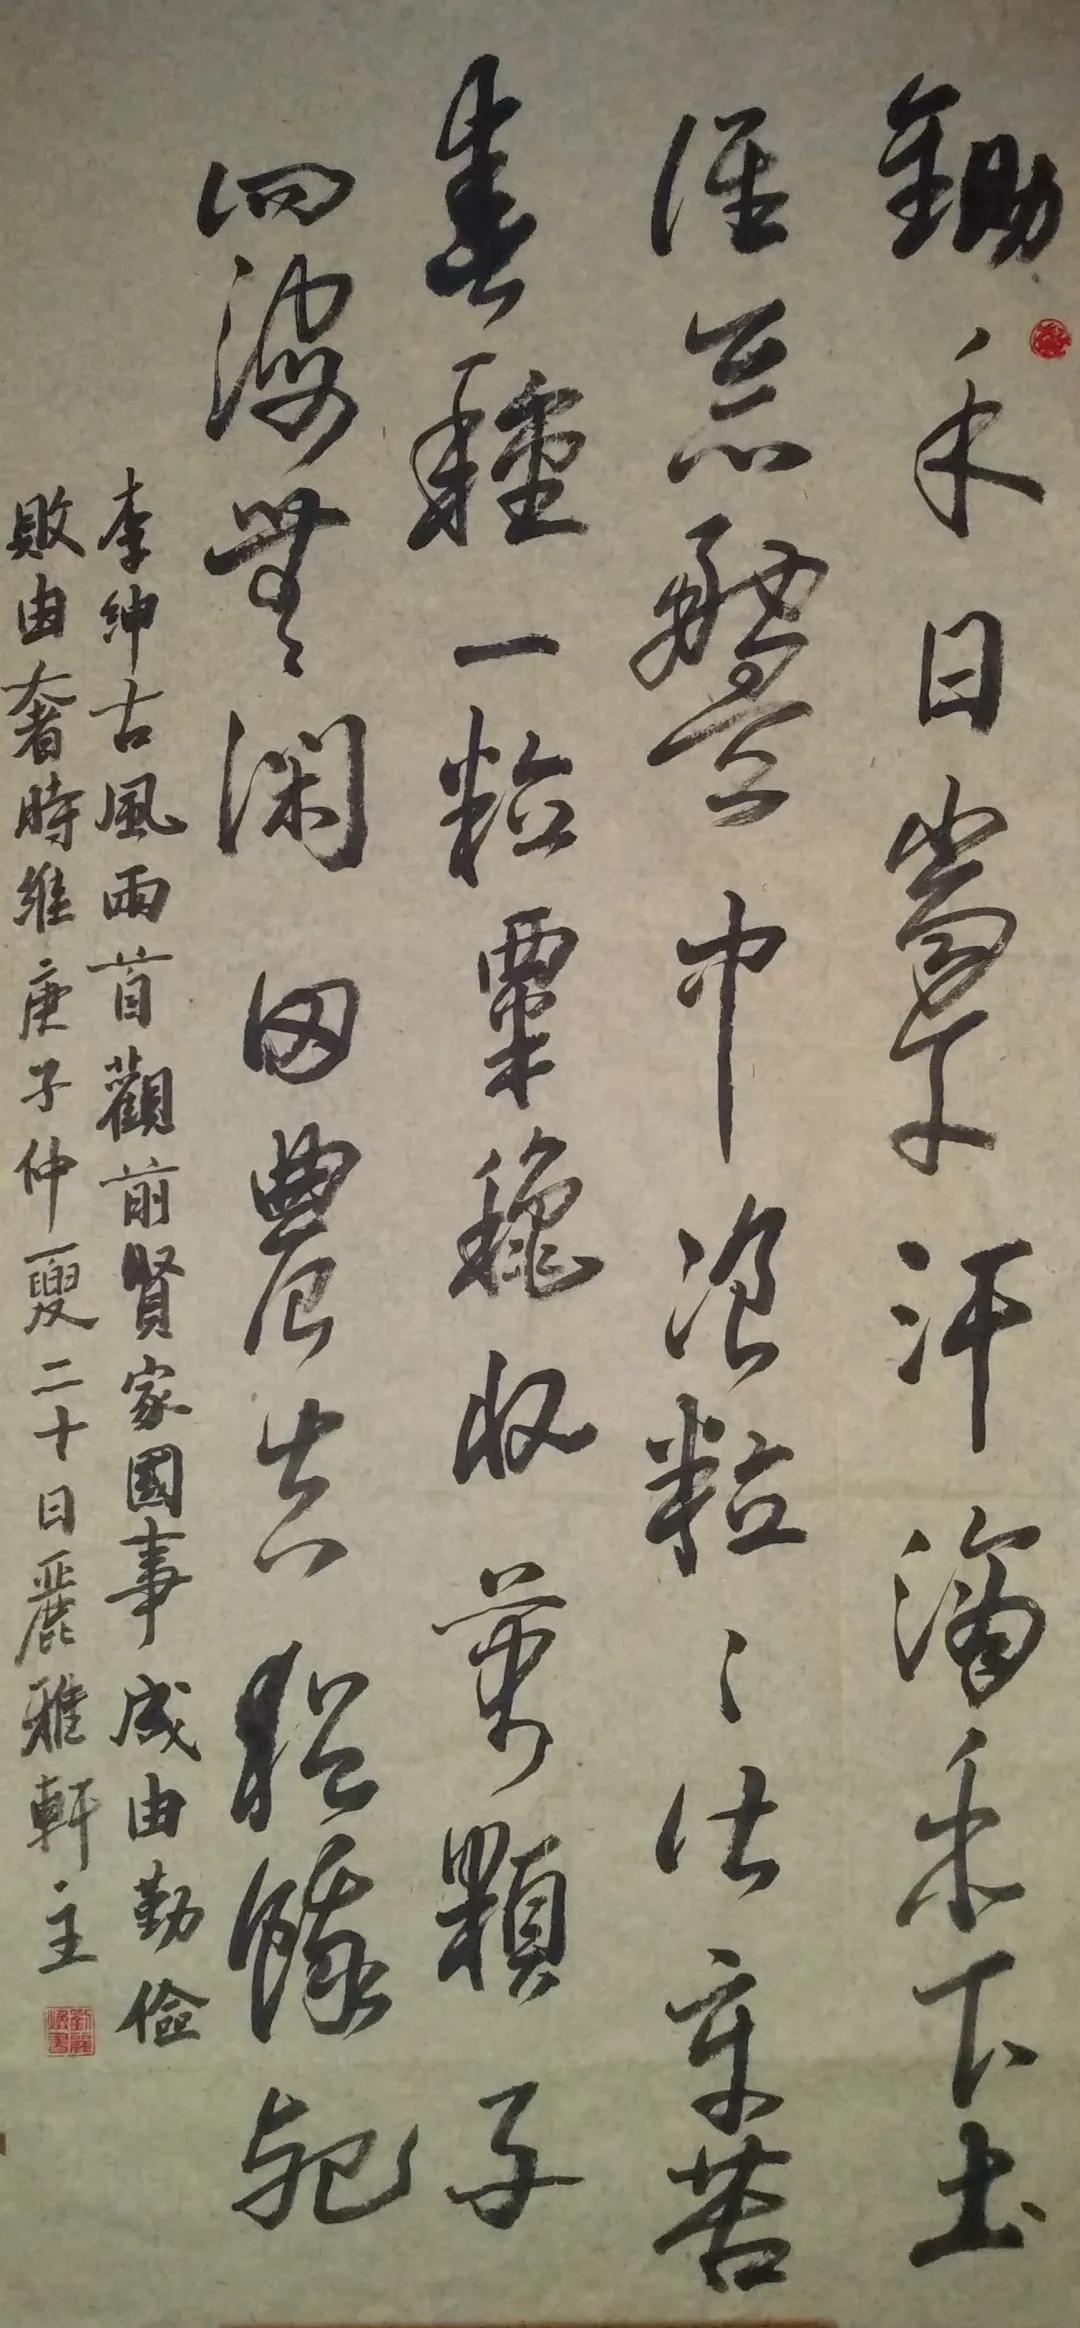 鋤禾日當午汗滴禾下土
誰念盤中飧粒〻皆辛苦
春種一粒粟穐收萬顆子
四海無〻閑田農夫猶餓死
李紳古風兩首觀前賢家國事成由勤儉
敗由奢時維庚子仲夏二十日麗雅軒主